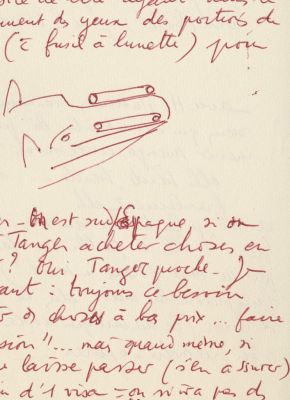 ment ds yeux des portions de
(E fusil à lunette) pour
er - est sur Espagne, si on
Tanger acheter choses en
? Oui, Tanger proche -
ant : toujours ce besoin
choses à bas prix... faire
sion"... mais quand même, si
laisse passer (s'en assurer)
d'1 visa = on n'ira pas ds